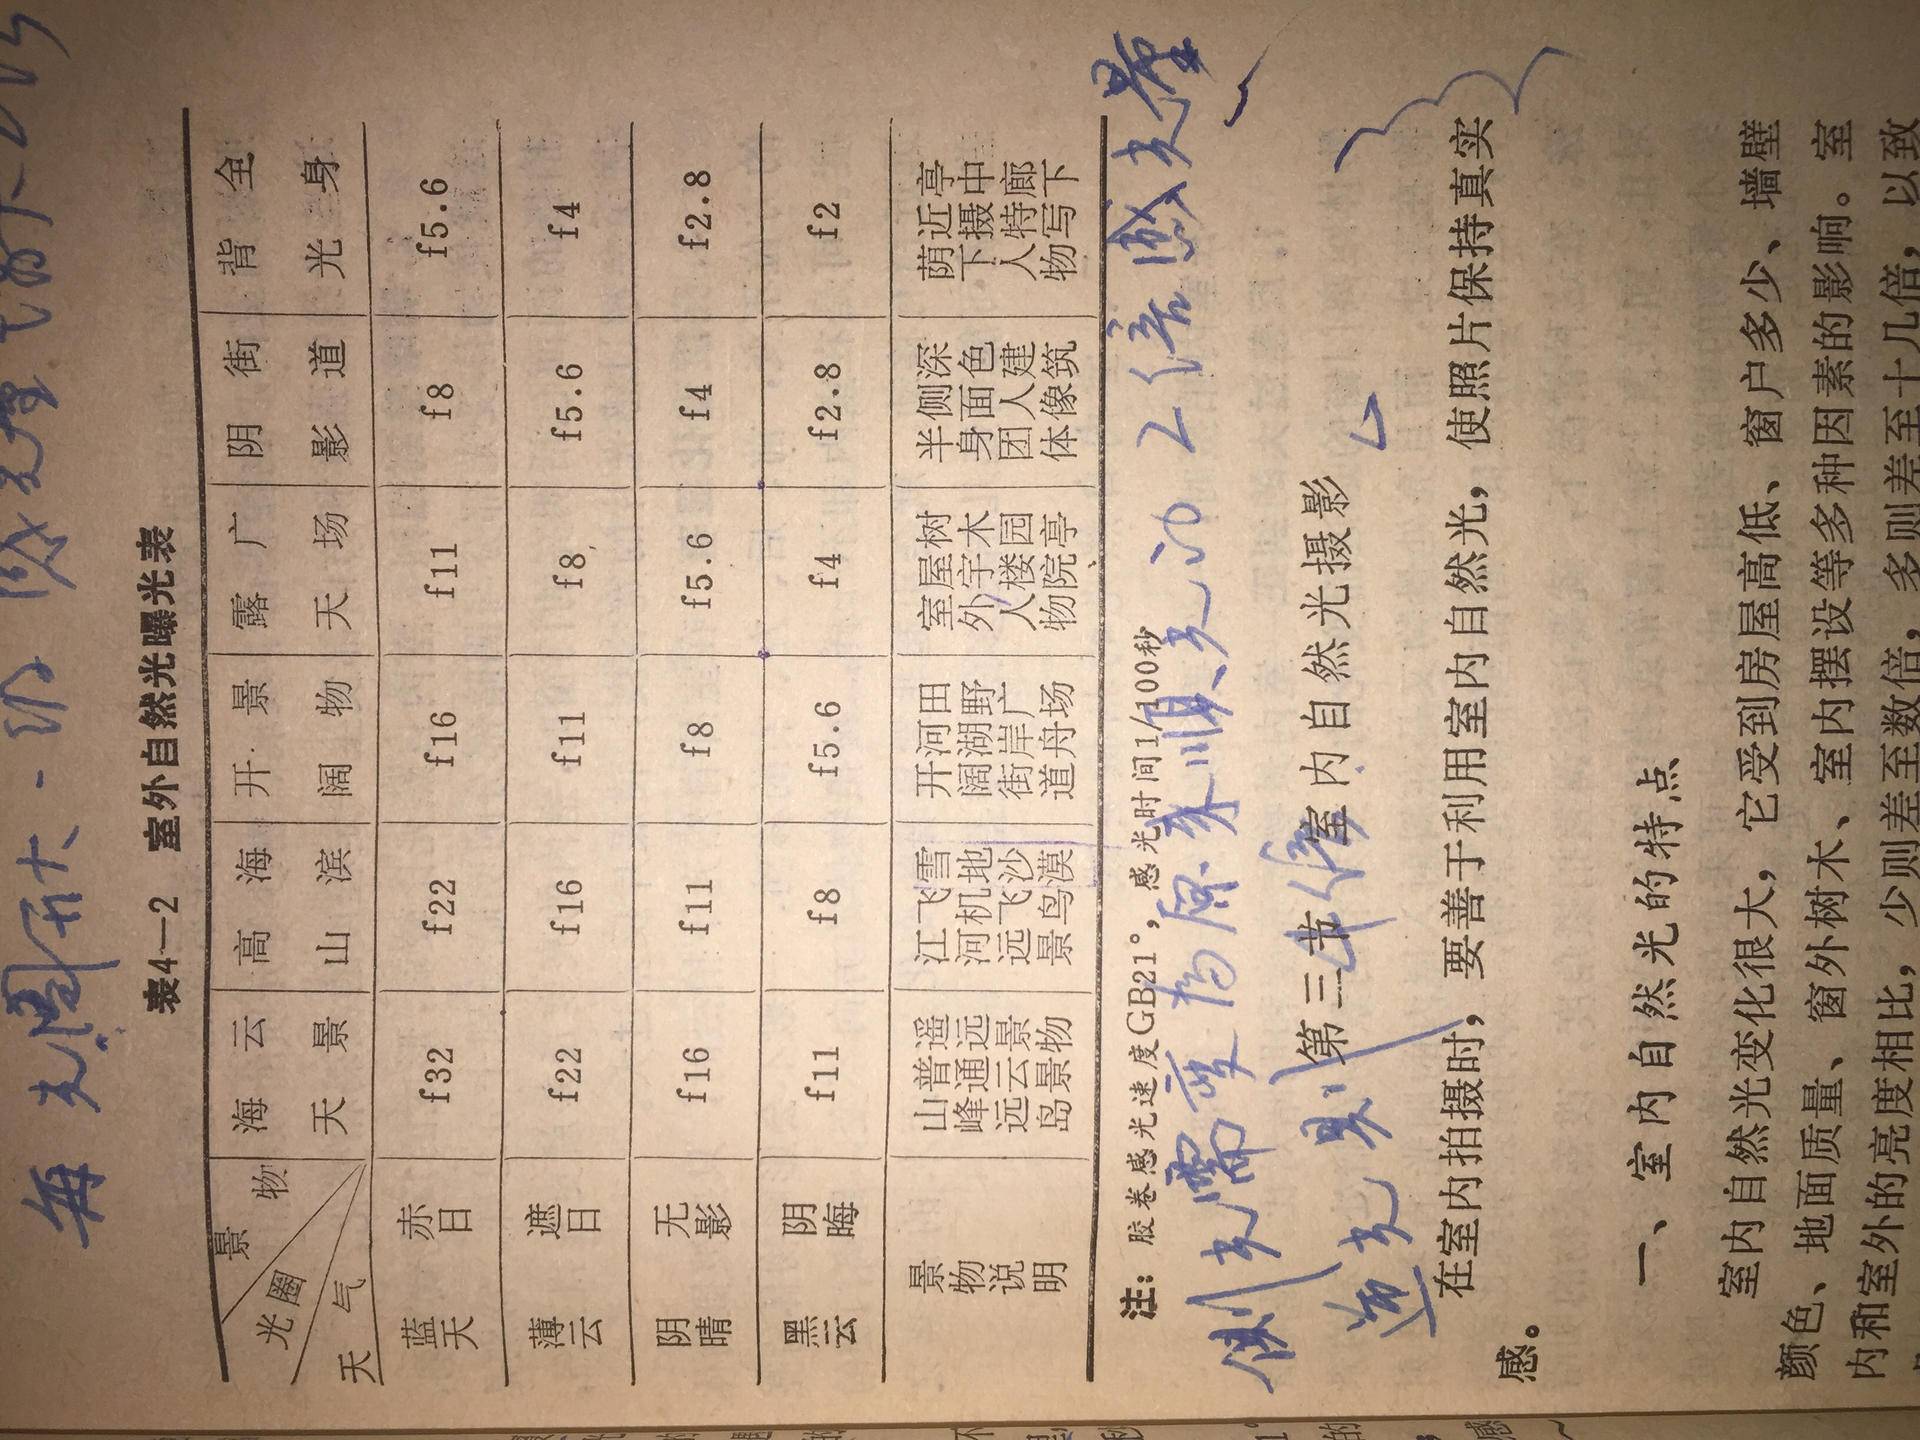 每光圈开大一
表4—2 室外自然光曝光表
景物 光圈 天气 海天云景 高山海滨 开阔景物 露天广场 阴影街道 背光全身
蓝天 赤日 f32 f22 f16 f11 f8 f5.6
薄云 遮日 f22 f16 f11 f8 f5.6 f4
阴晴 无影 f16 f11 f8 f5.6 f4 f2.8
黑云 阴晦 f11 f8 f5.6 f4 f2.8 f2
景物说明 山峰远岛 普通云景 遥远景物 江河远景 飞机飞鸟 雪地沙漠 开阔街道 河湖岸舟 田野广场 室外人物 屋宇楼院 树木园亭 半身团体 侧面人像 深色建筑 荫下人物 近摄特写 亭中廊下
注：胶卷感光速度GB21°，感光时间1/100秒
侧光需变为原来顺光的2倍感光量
逆光则4倍
第三节 室内自然光摄影
在室内拍摄时，要善于利用室内自然光，使照片保持真实
感。
一、室内自然光的特点
室内自然光变化很大，它受到房屋高低、窗户多少、墙壁
颜色、地面质量、窗外树木、室内摆设等多种因素的影响。室
内和室外的亮度相比，少则差至数倍，多则差至十几倍，以致